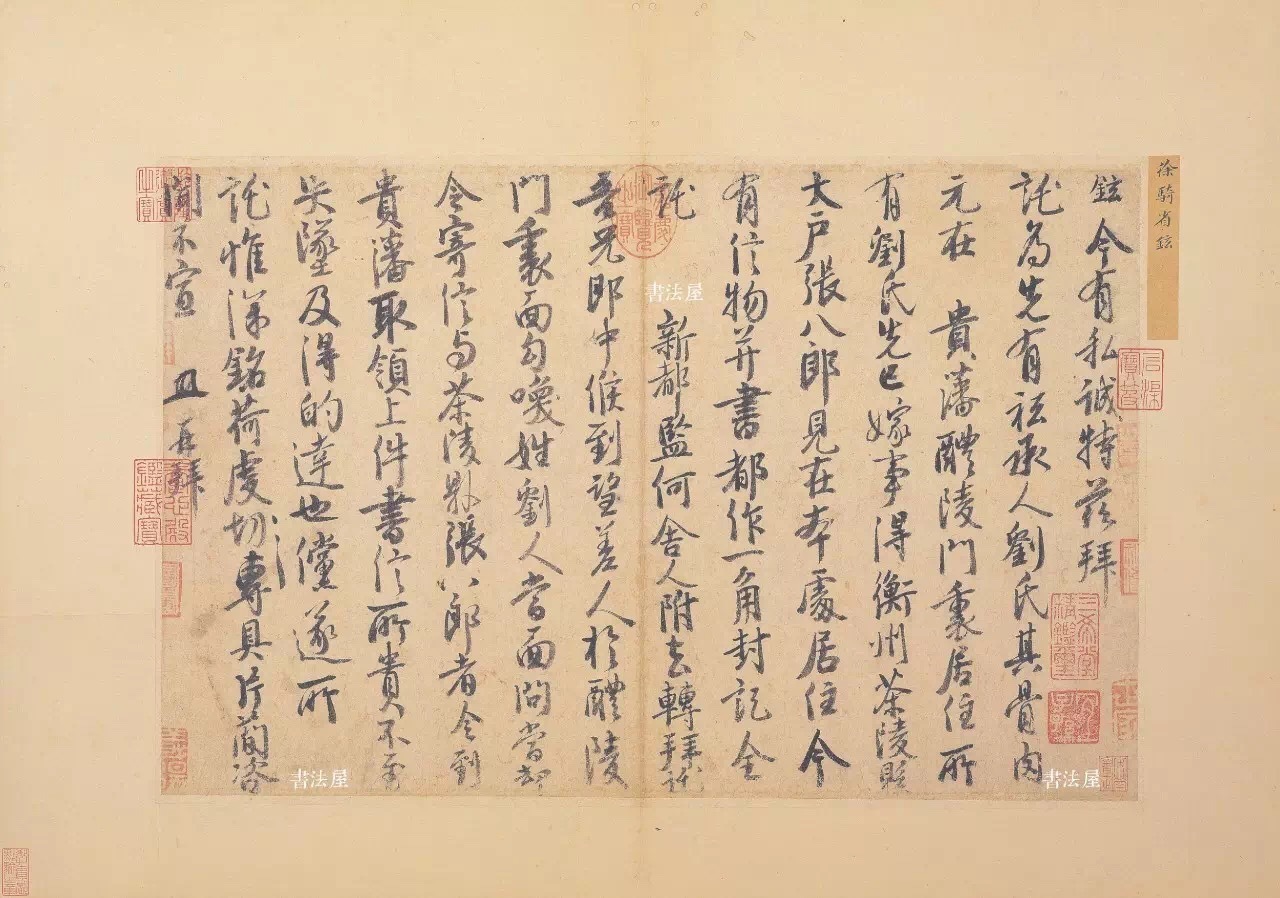 徐騎省鉉
鉉今有私誠特茲拜
託為先有祗承人劉氏其骨肉
元在 貴藩醴陵門裏居住所
有劉氏先已嫁事得衡州茶陵縣
大戶張八郎見在本處居住今
有信物并書都作一角封記全
託 新都監何舍人附去轉拜託
吾兄郎中候到望差人於醴陵
門裏面勾喚姓劉人當面問當却
令寄信与茶陵縣張八郎者令到
貴藩取領上件書信所貴不至
失墜及得的達也儻遂所
託惟深銘荷虔切專具片簡咨
聞不宣 再拜
書法屋
書法屋
書法屋